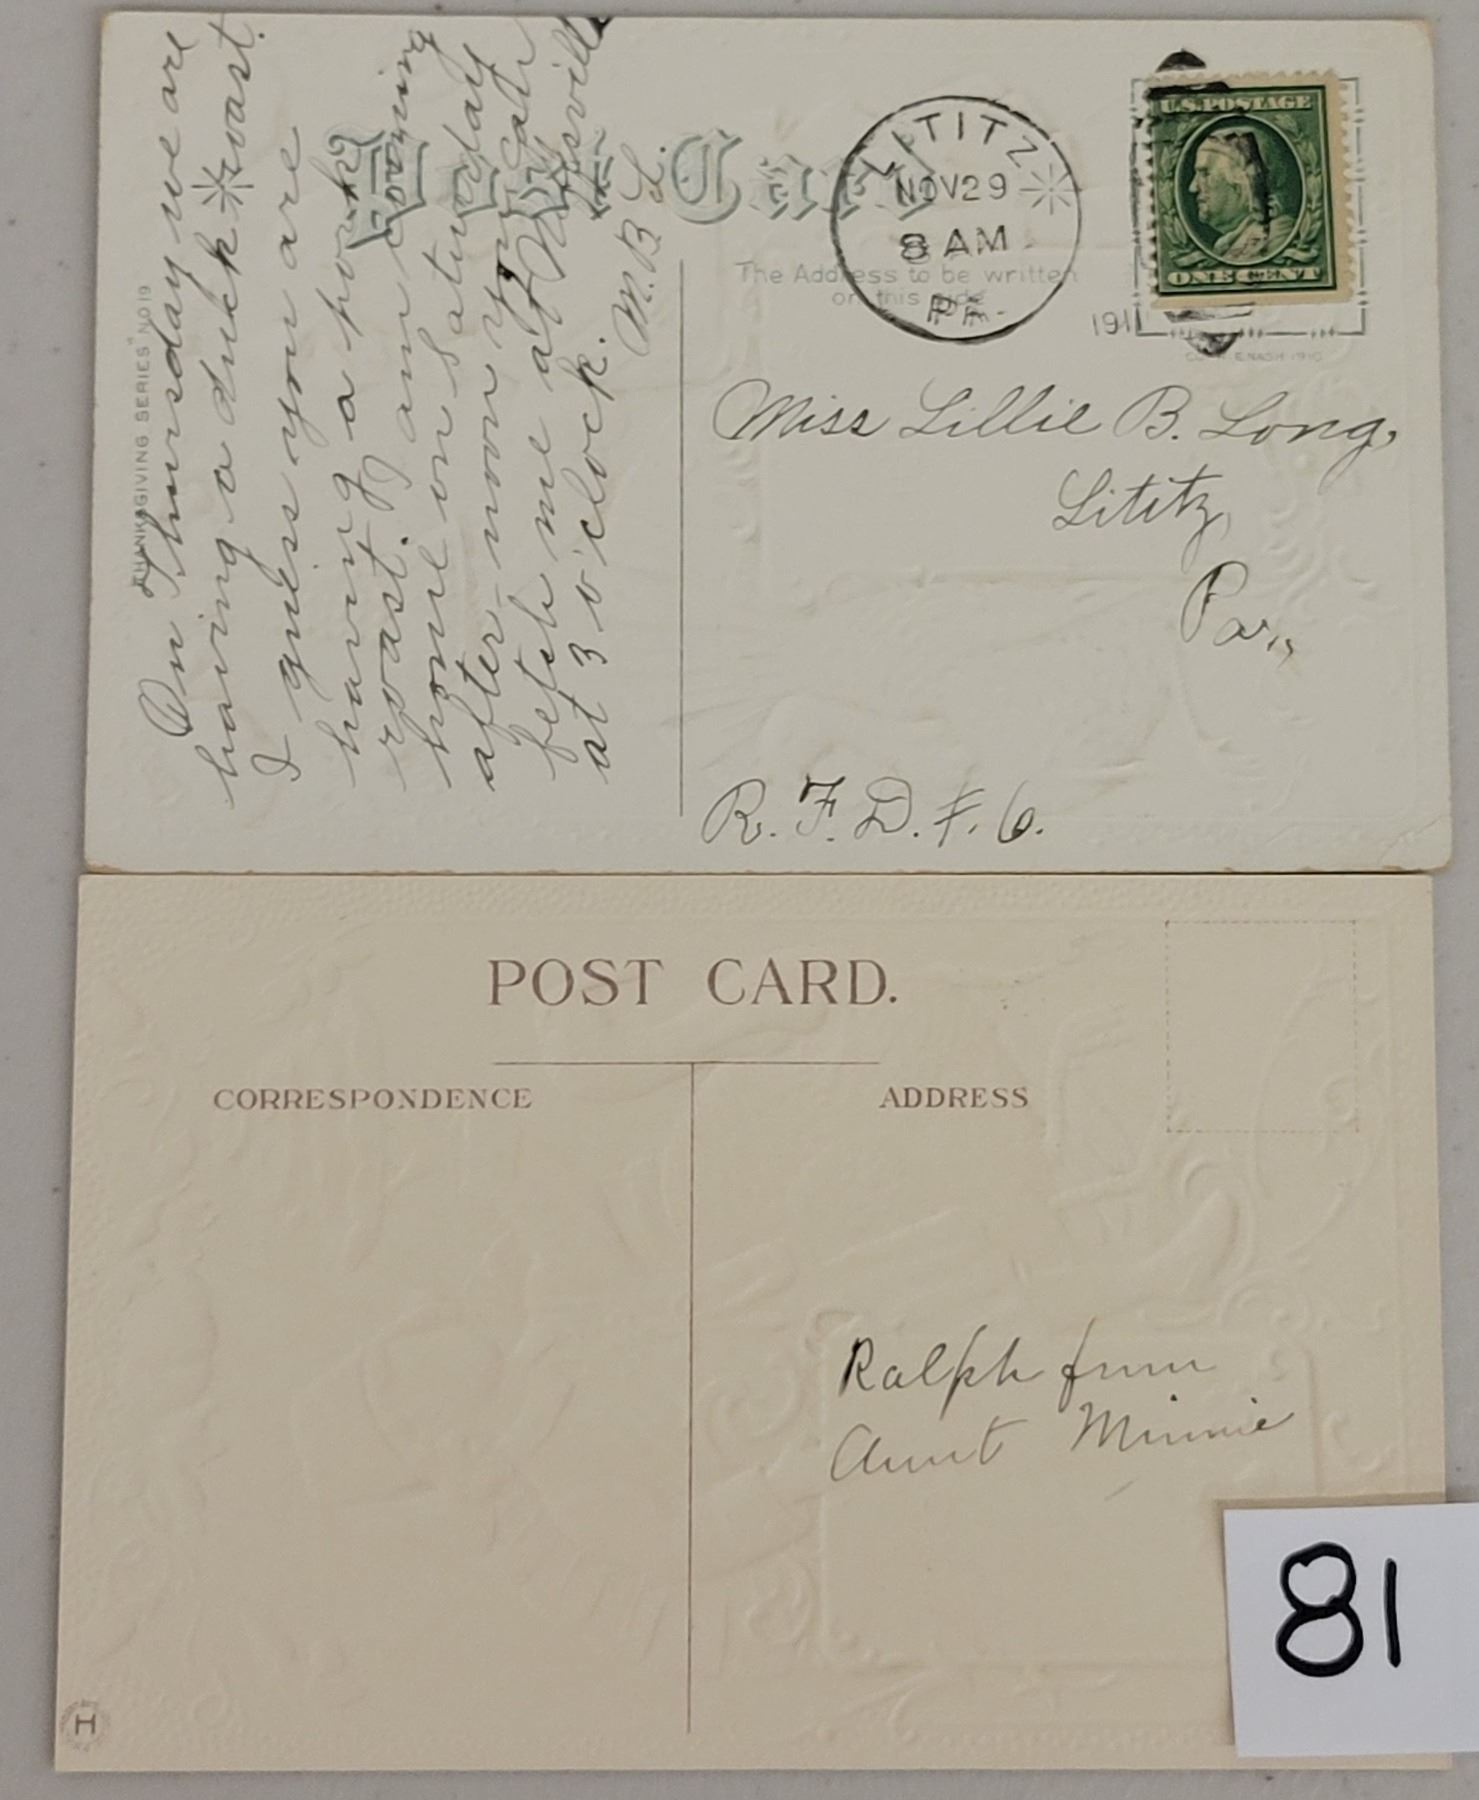 On Thursday we are
having a duck roast.
I guess you are
having a pork
roast. I am coming
home on Saturday
after-noon you can
fetch me at
at 3 o'clock.
M. B. L.
THANKSGIVING SERIES NO 19
Post Card
The Address to be written
on this side
LITITZ
NOV 29
8 AM
PA.
1911
U.S. POSTAGE
ONE CENT
E. NASH 1910
Miss Lillie B. Long,
Lititz,
Pa.,
R. F. D. #. 6.
POST CARD.
CORRESPONDENCE
ADDRESS
Ralph from
Aunt Minnie
H
81